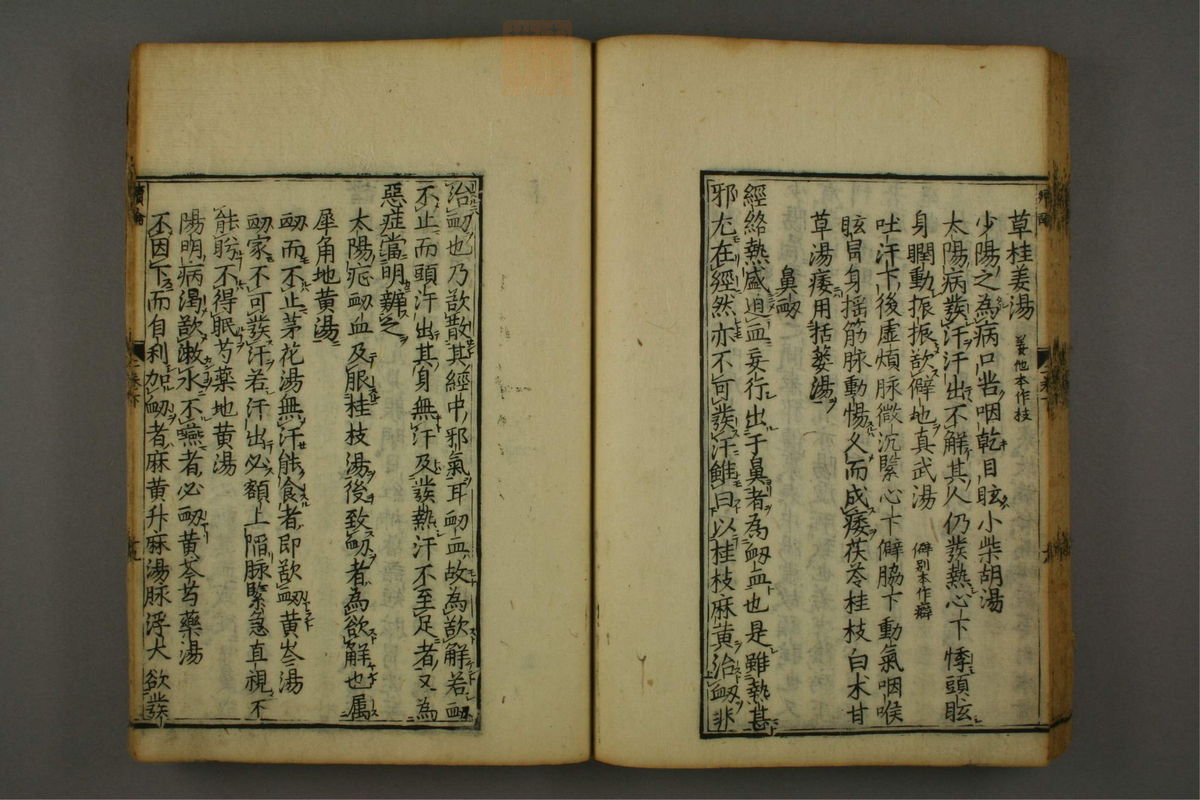 草桂姜湯 姜他本作枝
少陽之為病口苦咽乾目眩小柴胡湯
太陽病發汗汗出不解其人仍發熱心下悸頭眩
身瞤動振振欲僻地真武湯 僻别本作擗
吐汗下後虚煩脉微沉緊心下僻脇下動氣咽喉
眩冒身揺筋脉動惕久而成痿茯苓桂枝白术甘
草湯痿用括蔞湯
鼻衂
經絡熱盛迫血妄行出于鼻者為衂血也是雖熱甚
邪尢在經然亦不可發汗雖曰以桂枝麻黄治衂非
治衂也乃欲散其經中邪氣耳衂血故為欲解若衂
不止而頭汗出其身無汗及發熱汗不至足者又為
惡症當明辨之
太陽症衂血及服桂枝湯後致衂者為欲解也属
犀角地黄湯
衂而不止茅花湯無汗能食者即欲衂黄岑湯
衂家不可發汗若汗出必額上陷脉緊急直視不
能眴不得眠芍藥地黄湯
陽明病渴欲漱水不嚥者必衂黄芩芍藥湯
不因下而自利加衂者麻黄升麻湯脉浮大欲發